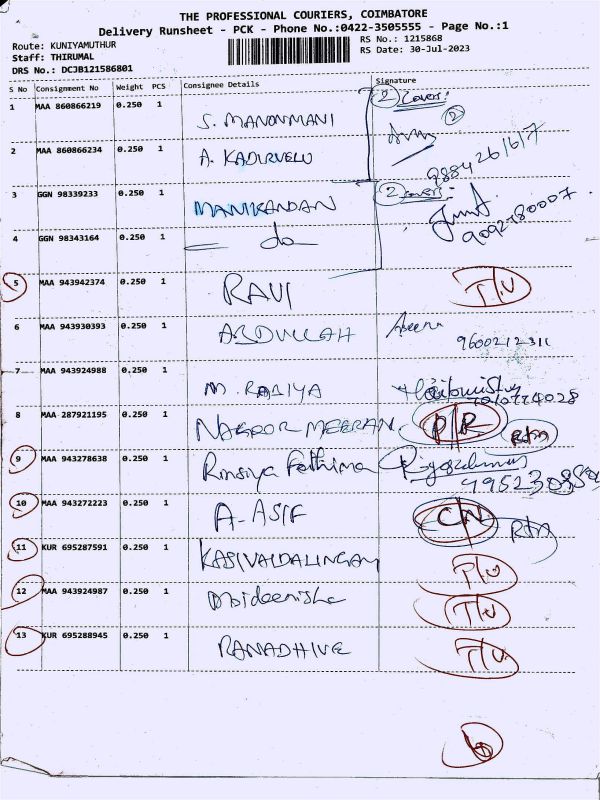 THE PROFESSIONAL COURIERS, COIMBATORE
Delivery Runsheet - PCK - Phone No.:0422-3505555 - Page No.:1
Route: KUNIYAMUTHUR
Staff: THIRUMAL
DRS No.: DCJB121586801
RS No.: 1215868
RS Date: 30-Jul-2023
S No Consignment No Weight PCS Consignee Details Signature
1 MAA 860866219 0.250 1 S. MANONMANI 2 Covers: 2
2 MAA 860866234 0.250 1 A. KADIRVELU 9884261617
3 GGN 98339233 0.250 1 MANIKANDAN 2 Covers: 9092780007
4 GGN 98343164 0.250 1 do
5 MAA 943942374 0.250 1 RAVI T/U
6 MAA 943930393 0.250 1 ABDULLAH 9600212311
7 MAA 943924988 0.250 1 M. RABIYA
8 MAA 287921195 0.250 1 NAGOOR MEERAN D/R Rtn
9 MAA 943278638 0.250 1 Rinsiya Fathima
10 MAA 943272223 0.250 1 A-ASIF CN Rtn
11 KUR 695287591 0.250 1 KASIVAIDALINGAM T/U
12 MAA 943924987 0.250 1 Moideenisha T/U
13 KUR 695288945 0.250 1 RANADHIVE T/U
6